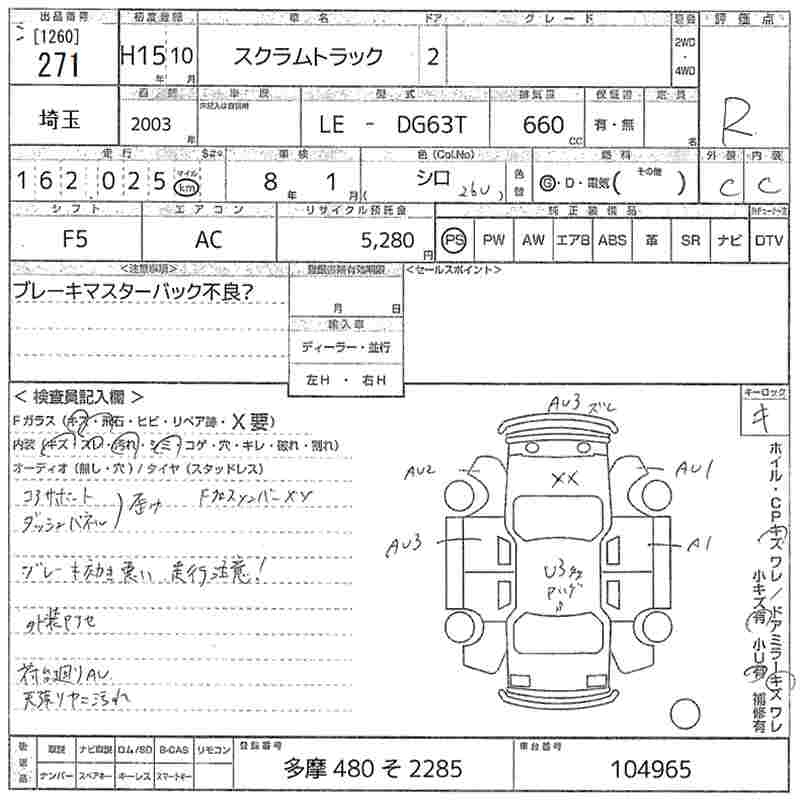 出品番号 初度登録 車名 ドア グレード 駆動 評価点
[1260]
271 H15年 10月 スクラムトラック 2 2WD・4WD R
埼玉 2003年 車歴 型式 LE - DG63T 排気量 660cc 保証書 有・無 定員 名
走行 車検 色(Col.No) 色替 燃料 外装 内装
162,025 マイル km 8年 1月 シロ (26U) G・D・電気( その他 ) C C
シフト エアコン リサイクル預託金 純正装備品
F5 AC 5,280円 PS PW AW エアB ABS 革 SR ナビ DTV
<注意事項> <セールスポイント>
ブレーキマスターバック不良?
月 日
輸入車
ディーラー・並行
左H ・ 右H
< 検査員記入欄 > キーロック
キ
Fガラス (キズ・飛石・ヒビ・リペア跡・X要)
内装 (キズ・スレ・汚れ・シミ・コゲ・穴・キレ・破れ・割れ)
オーディオ (無し・穴) / タイヤ (スタッドレス)
コアサポート
ダッシュパネル
ブレーキ効き悪い 走行注意!
荷台廻りAU
天張りヤニ汚れ
AU3 ズレ
XX
AU2 AU1
AU3 A1
U3
ホイル・CPキズ ワレ / ドアミラーキズ ワレ
小キズ有 小U有 補修有
後返品 取説 ナビ取説 ロム/SD B-CAS リモコン 登録番号 車台番号
ナンバー スペアキー キーレス スマートキー 多摩 480 そ 2285 104965